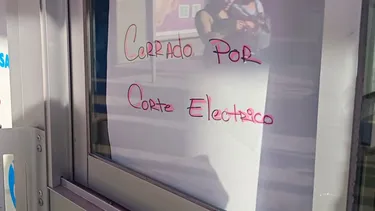 Cerrado Por
Corte Electrico